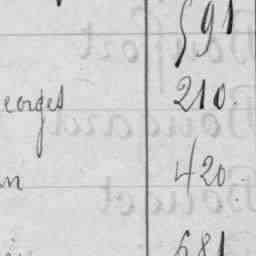 591
eorges 210.
n 420.
681